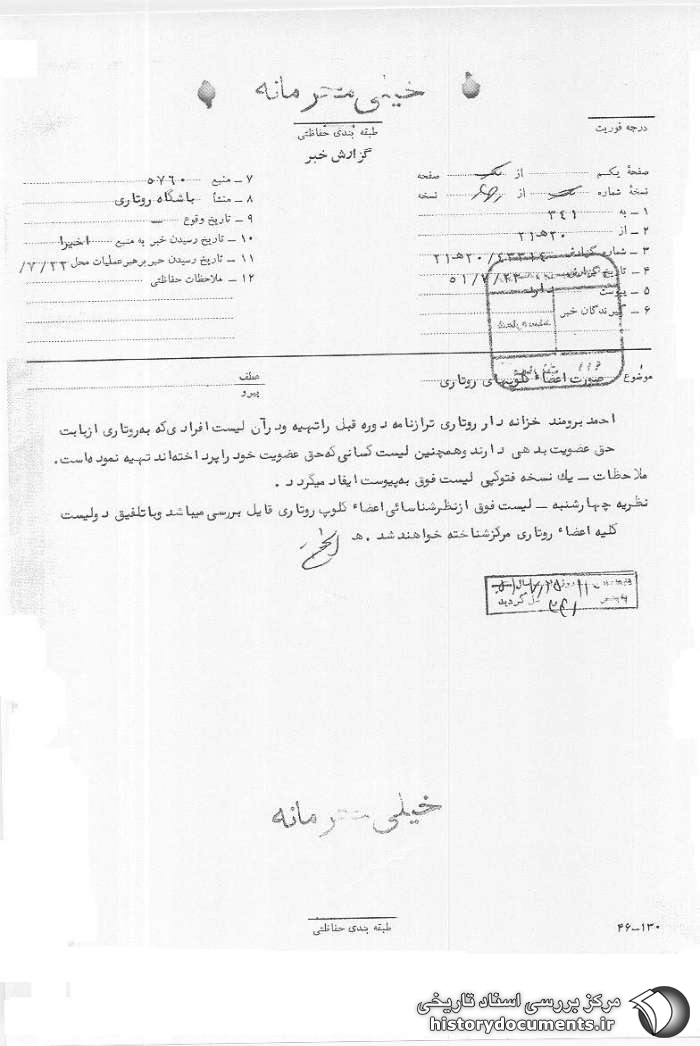 خیلی محرمانه
طبقه بندی حفاظتی
درجه فوریت
گزارش خبر
صفحهٔ یکم از یک صفحه
نسخهٔ شماره یک از چهار نسخه
۱ ـ به ۳۴۱
۲ ـ از ۲۰هـ۲۱
۳ ـ شماره گزارش ۲۰/۴۳۳۱۴هـ۲۱
۴ ـ تاریخ گزارش ۵۱/۷/۲۳
۵ ـ پیوست دارد
۶ ـ گیرندگان خبر
۷ ـ منبع ۵۷۶۰
۸ ـ منشأ باشگاه روتاری
۹ ـ تاریخ وقوع ـ
۱۰ ـ تاریخ رسیدن خبر به منبع اخیرا
۱۱ ـ تاریخ رسیدن خبر برهبر عملیات محل ۷/۲۲/
۱۲ ـ ملاحظات حفاظتی
موضوع صورت اعضاء کلوپهای روتاری
عطف
پیرو
احمد برومند خزانه دار روتاری ترازنامه دوره قبل را تهیه و در آن لیست افرادی که به روتاری از بابت
حق عضویت بدهی دارند وهمچنین لیست کسانی که حق عضویت خود را پرداخته اند تهیه نموده است.
ملاحظات ـ یك نسخه فتوکپی لیست فوق به پیوست ایفاد میگردد .
نظریه چهارشنبه ـ لیست فوق از نظر شناسائی اعضاء کلوپ روتاری قابل بررسی میباشد وباتلفیق دولیست
کلیه اعضاء روتاری مرکز شناخته خواهند شد . هـ
خیلی محرمانه
طبقه بندی حفاظتی
۴۶ـ۱۳۰
مرکز بررسی اسناد تاریخی
historydocuments.ir